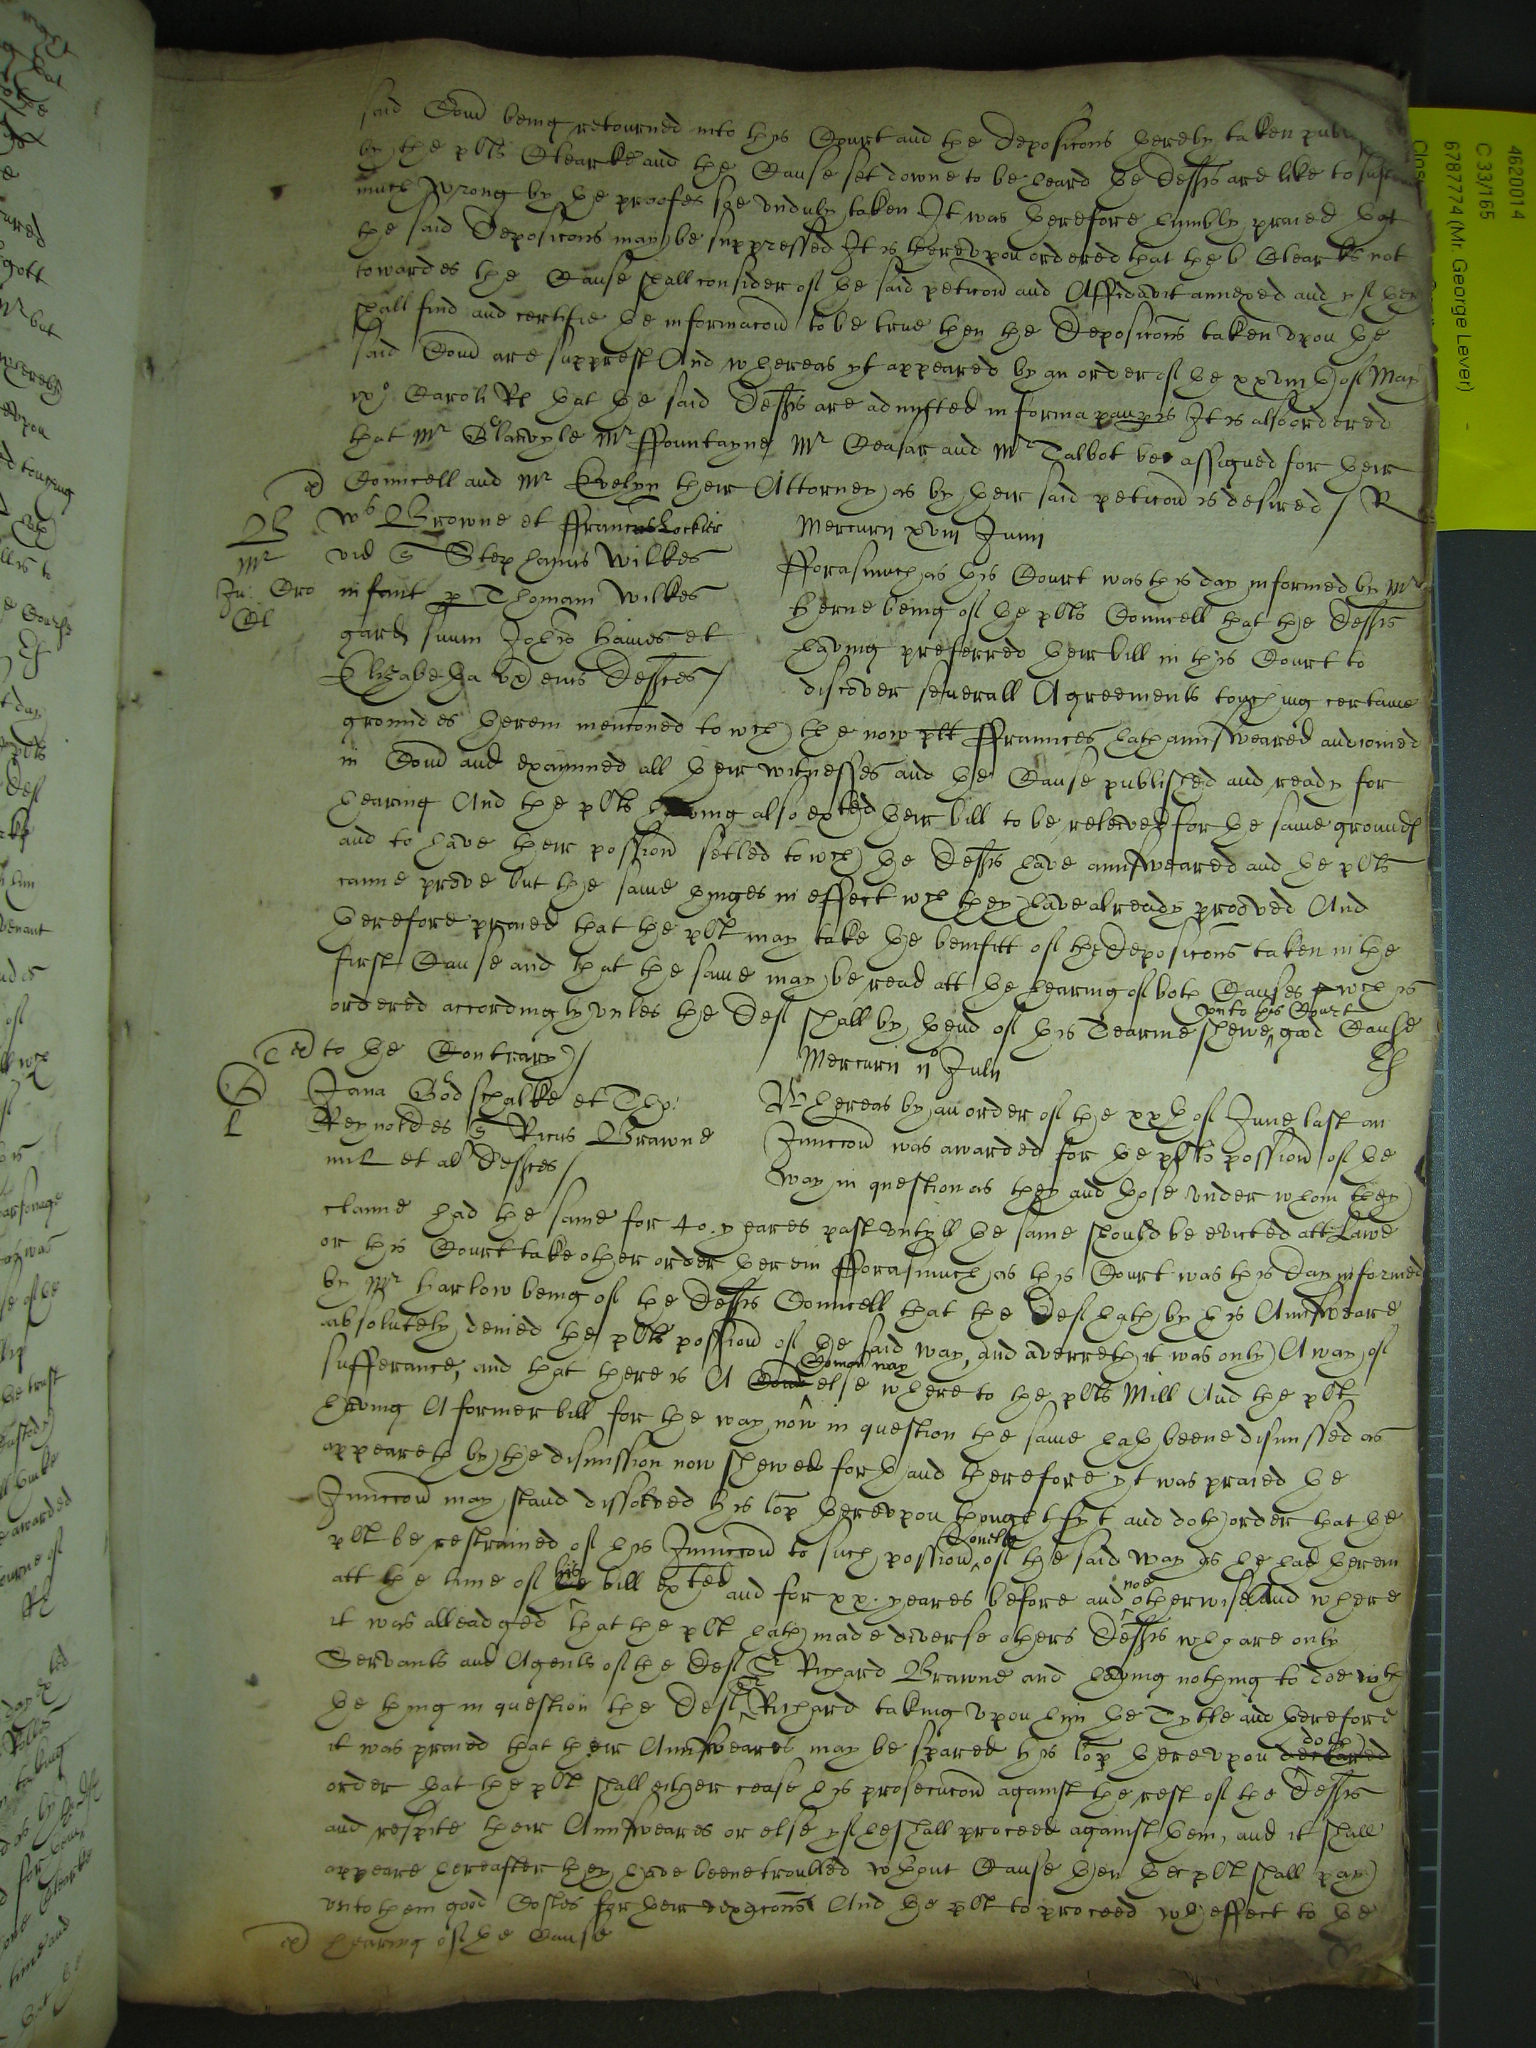 said Com̄ being retourned into this Court and the deposicons thereby taken
by the plts Clearke and the Cause set downe to be heard the Defts are like to
much wrong by the proofes soe vnduly taken It was therefore humbly praied that
the said Deposicons may be suppressed It is therevpon ordered that the Clearkes not
towardes the Cause shall consider of the said peticon and Affidavit annexed and yf they
shall find and certifie the informacon to be true then the Deposicons taken vpon the
said Com̄ are supprest And whereas yt appeared by an order of the xxviijth of May
ixo Caroli Rs that the said Defts are admitted in forma paupis It is alsoe ordered
that Mr Glanvyle Mr Fountayne Mr Ceasar and Mr Talbot bee assigned for their
Councell and Mr Evelyn their Attorney as by their said peticon is desired / R
Ws Browne et Francus Lockier
vid Stephanus Wilkes
infant p Thomam Wilkes
gard suum Johis Haines et
Elizabetha vx eius Deftes /
Mercurij xviij Junij
Forasmuch as this Court was this day informed by Mr
Herne being of the plts Councell that the Defts
having preferred their bill in this Court to
discover severall Agreements touching certaine
groundes therein menconed to wch the now plt Fraunces hath annsweared and ioined
in Com̄ and examined all their witnesses and the Cause published and ready for
hearing And the plts having also exted their bill to be releived for the same grounds
and to have their possion setled to wch the Defts have annsweared and the plts
canne prove but the same thinges in effect wch they have already prooved And
therefore praied that the plt may take the benifitt of the deposicons taken in the
first Cause and that the same may be read att the hearing of both Causes wch is
ordered accordingly vnles the Deft shall by thend of this Tearme shewe vnto this Court good Cause
to the Contrary /
Mercurij ijo Julij
Jana Godschalke et Tho:
Reynoldes Ricus Brawne
mil et al Deftes /
Whereas by an order of the xxth of June last an
Iniuccon was awarded for the plts possion of the
way in question as they and those vnder whom they
claime had the same for 40. yeares past vntill the same should be evicted att Lawe
or this Court take other order therein Forasmuch as this Court was this Day informed
by Mr Harlow being of the Defts Councell that the Deft hath by his Annsweare
absolutely denied the plts possion of the said way, and averreth it was only A way of
sufferance, and that there is A Comon way else where to the plts Mill And the plt
having A former bill for the way now in question the same hath beene dismissed as
appeareth by the dismission now shewed forth and therefore yt was praied the
Iniuccon may stand dissolved his lop therevpon thought fyt and doth order that the
plt be restrained of his Iniuccon to such possion onely of the said way as he had therein
att the time of his bill exted and for xx. yeares before and not otherwise And where
it was alleadged that the plt hath made diverse others Defts who are only
Servants and Agents of the Deft Sr Richard Brawne and having nothing to doe wth
the thing in question the Deft Sr Richard taking vpon him the Tytle and therefore
it was praied that their Annsweares may be spared his lop therevpon doth
order that the plt shall either cease his prosecucon against the rest of the Defts
and respite their Annsweares or else yf he shall proceed against them, and it shall
appeare hereafter they have beene troubled wthout Cause then the plt shall pay
vnto them good Costes for their vexacons And the plt to proceed wth effect to the
hearing of the Cause
4620014
C 33/165
6787774 (Mr. George Lever)